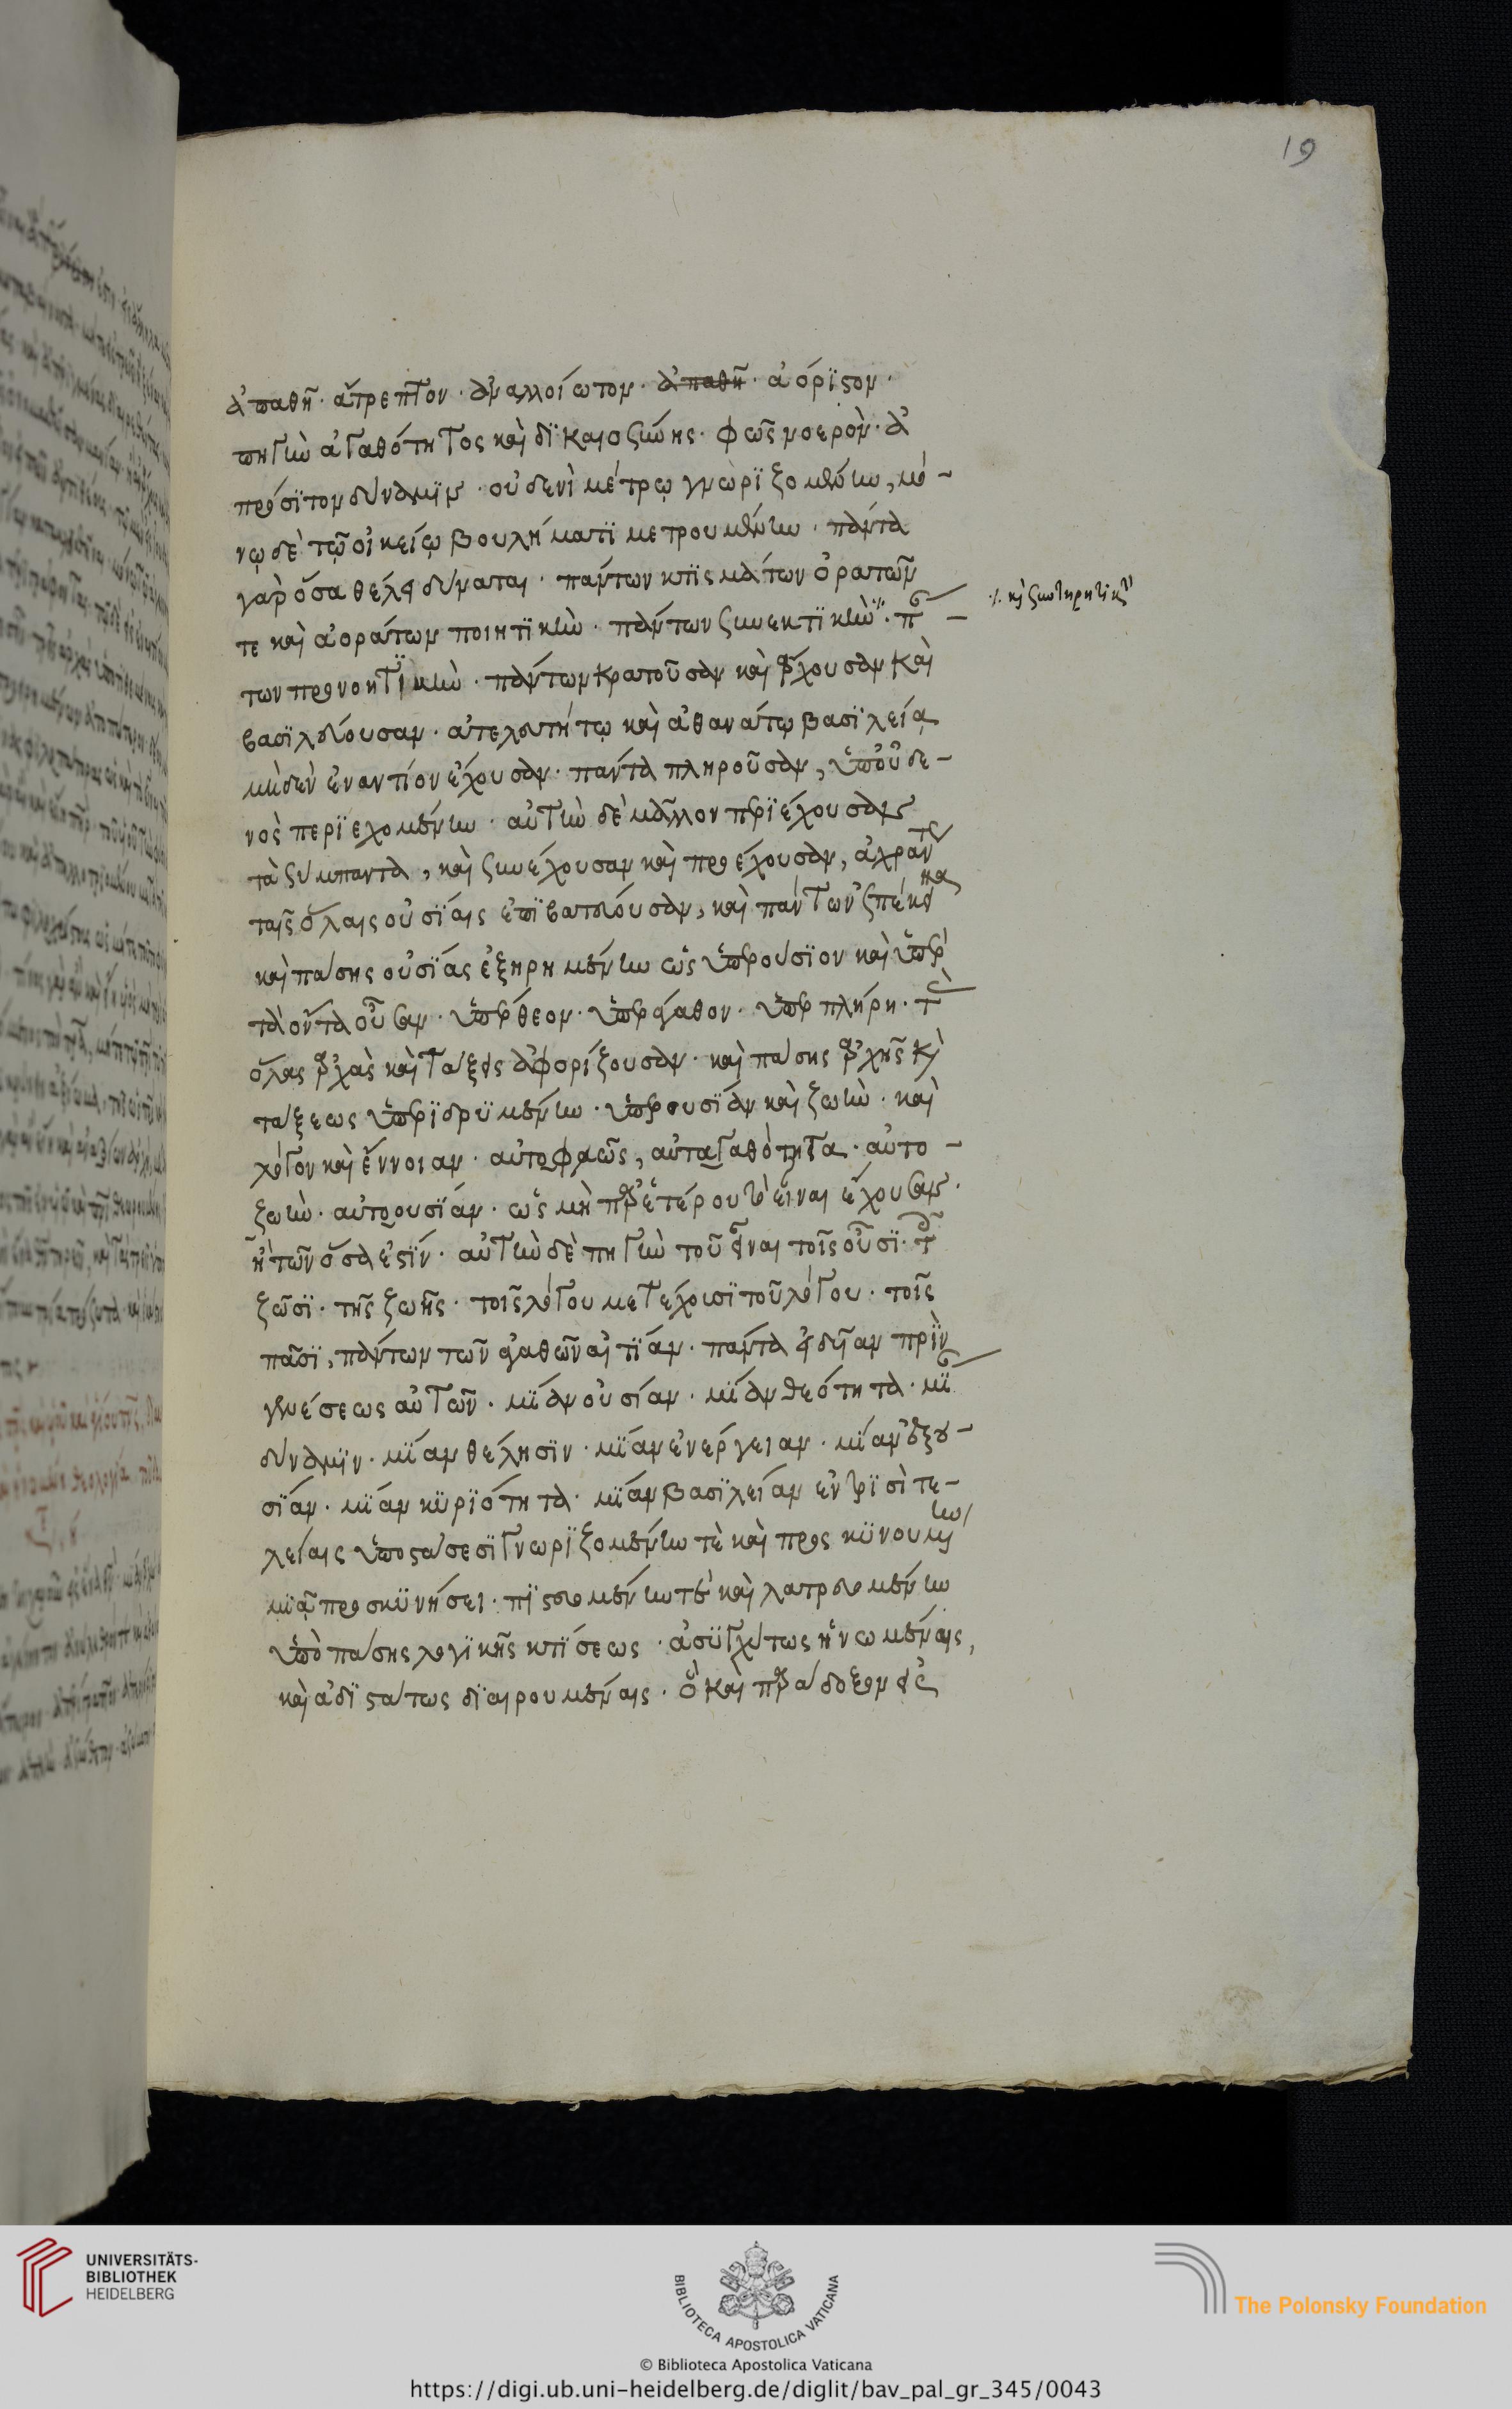 19
ἀπαθῆ· ἄτρεπτον· ἀναλλοίωτον· ἀπαθῆ· ἀόριστον·
πηγὴν ἀγαθότητος καὶ δικαιοσύνης· φῶς νοερὸν· ἀ
πρόσιτον δύναμιν· οὐδενὶ μέτρῳ γνωριζομένην, μό-
νῳ δὲ τῷ οἰκείῳ βουλήματι μετρουμένην· πάντα
γὰρ ὅσα θέλει δύναται· πάντων κτισμάτων ὁρατῶν
τε καὶ ἀοράτων ποιητικὴν· πάντων συνεκτικὴν· πάν-
⁒ καὶ συντηρητικήν
των προνοητικὴν· πάντων κρατοῦσαν καὶ ἄρχουσαν καὶ
βασιλεύουσαν· ἀτελευτήτῳ καὶ ἀθανάτῳ βασιλείᾳ
μηδὲν ἐναντίον ἔχουσαν· πάντα πληροῦσαν, ὑπ' οὐδε-
νὸς περιεχομένην· αὐτὴν δὲ μᾶλλον περιέχουσαν
τὰ σύμπαντα, καὶ συνέχουσαν καὶ προέχουσαν, ἀχράντως
ταῖς ὅλαις οὐσίαις ἐπιβατεύουσαν, καὶ πάντων ἐπέκεινα
καὶ πάσης οὐσίας ἐξῃρημένην ὡς ὑπερούσιον καὶ ὑπὲρ
τὰ ὄντα οὖσαν· ὑπέρθεον· ὑπεράγαθον· ὑπερπλήρη· τὰς
ὅλας ἀρχὰς καὶ τάξεις ἀφορίζουσαν· καὶ πάσης ἀρχῆς καὶ
τάξεως ὑπεριδρυμένην· ὑπὲρ οὐσίαν καὶ ζωὴν· καὶ
λόγον καὶ ἔννοιαν· αὐτοφῶς, αὐταγαθότητα· αὐτο-
ζωὴν· αὐτοουσίαν· ὡς μὴ παρ' ἑτέρου τὸ εἶναι ἔχουσαν·
ἢ τῶν ὅσα ἐστίν· αὐτὴν δὲ πηγὴν τοῦ εἶναι τοῖς οὖσι· τοῖς
ζῶσι· τῆς ζωῆς· τοῖς λόγου μετέχουσι τοῦ λόγου· τοῖς
πᾶσι, πάντων τῶν ἀγαθῶν αἰτίαν· πάντα εἰδυῖαν πρὶν
γενέσεως αὐτῶν· μίαν οὐσίαν· μίαν θεότητα· μίαν
δύναμιν· μίαν θέλησιν· μίαν ἐνέργειαν· μίαν ἐξου-
σίαν· μίαν κυριότητα· μίαν βασιλείαν ἐν τρισὶ τε-
λείαις ὑποστάσεσι γνωριζομένην τὲ καὶ προσκυνουμένην
μιᾷ προσκυνήσει· πιστευομένην τὲ καὶ λατρευομένην
ὑπὸ πάσης λογικῆς κτίσεως· ἀσυγχύτως ἡνωμέναις,
καὶ ἀδιστάτως διαιρουμέναις· ὃ καὶ παράδοξον εἰς
UNIVERSITÄTS-
BIBLIOTHEK
HEIDELBERG
BIBLIOTECA APOSTOLICA VATICANA
The Polonsky Foundation
© Biblioteca Apostolica Vaticana
https://digi.ub.uni-heidelberg.de/diglit/bav_pal_gr_345/0043